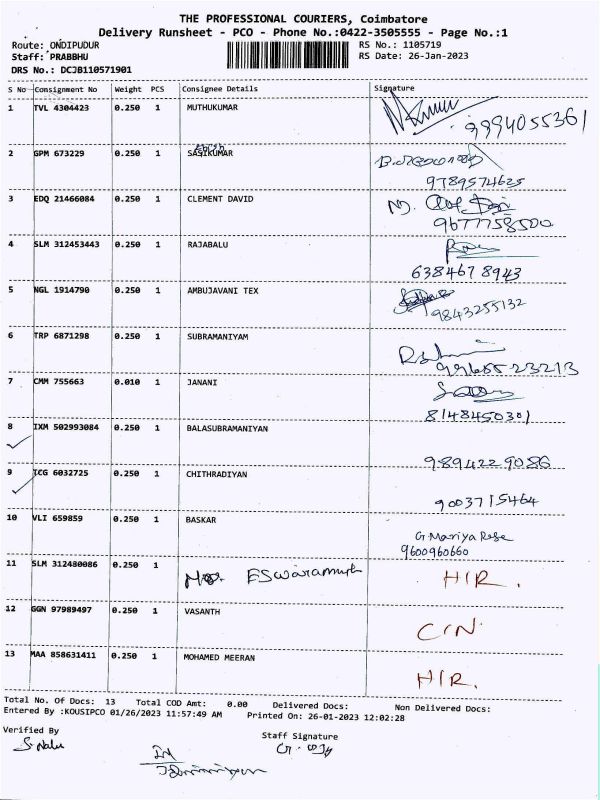 THE PROFESSIONAL COURIERS, Coimbatore
Delivery Runsheet - PCO - Phone No.:0422-3505555 - Page No.:1
Route: ONDIPUDUR RS No.: 1105719
Staff: PRABBHU RS Date: 26-Jan-2023
DRS No.: DCJB110571901
S No Consignment No Weight PCS Consignee Details Signature
1 TVL 4304423 0.250 1 MUTHUKUMAR
9994055361
2 GPM 673229 0.250 1 SASIKUMAR
9789574625
3 EDQ 21466084 0.250 1 CLEMENT DAVID
9677758500
4 SLM 312453443 0.250 1 RAJABALU
6384678943
5 NGL 1914790 0.250 1 AMBUJAVANI TEX
9843255132
6 TRP 6871298 0.250 1 SUBRAMANIYAM
9965523213
7 CMM 755663 0.010 1 JANANI
8148450301
8 IXM 502993084 0.250 1 BALASUBRAMANIYAN
9894229086
9 ICG 6032725 0.250 1 CHITHRADIYAN
9003715464
10 VLI 659859 0.250 1 BASKAR
G Mariya Rose
9600960660
11 SLM 312480086 0.250 1 H/R.
12 GGN 97989497 0.250 1 VASANTH C/N.
13 MAA 858631411 0.250 1 MOHAMED MEERAN H/R.
Total No. Of Docs: 13 Total COD Amt: 0.00 Delivered Docs: Non Delivered Docs:
Entered By :KOUSIPCO 01/26/2023 11:57:49 AM Printed On: 26-01-2023 12:02:28
Verified By Staff Signature